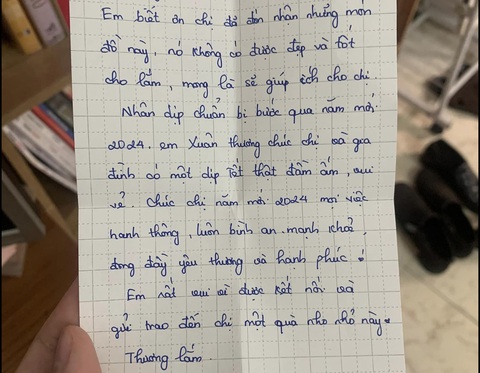 Em biết ơn chị đã đón nhận những món
đồ này, nó không có được đẹp và tốt
cho lắm, mong là sẽ giúp ích cho chị.
Nhân dịp chuẩn bị bước qua năm mới
2024. em Xuân thương chúc chị và gia
đình có một dịp Tết thật đầm ấm, vui
vẻ. Chúc chị năm mới 2024 mọi việc
hanh thông, luôn bình an, mạnh khoẻ,
đong đầy yêu thương và hạnh phúc!
Em rất vui vì được kết nối và
gửi trao đến chị một quà nho nhỏ này.
Thương lắm.